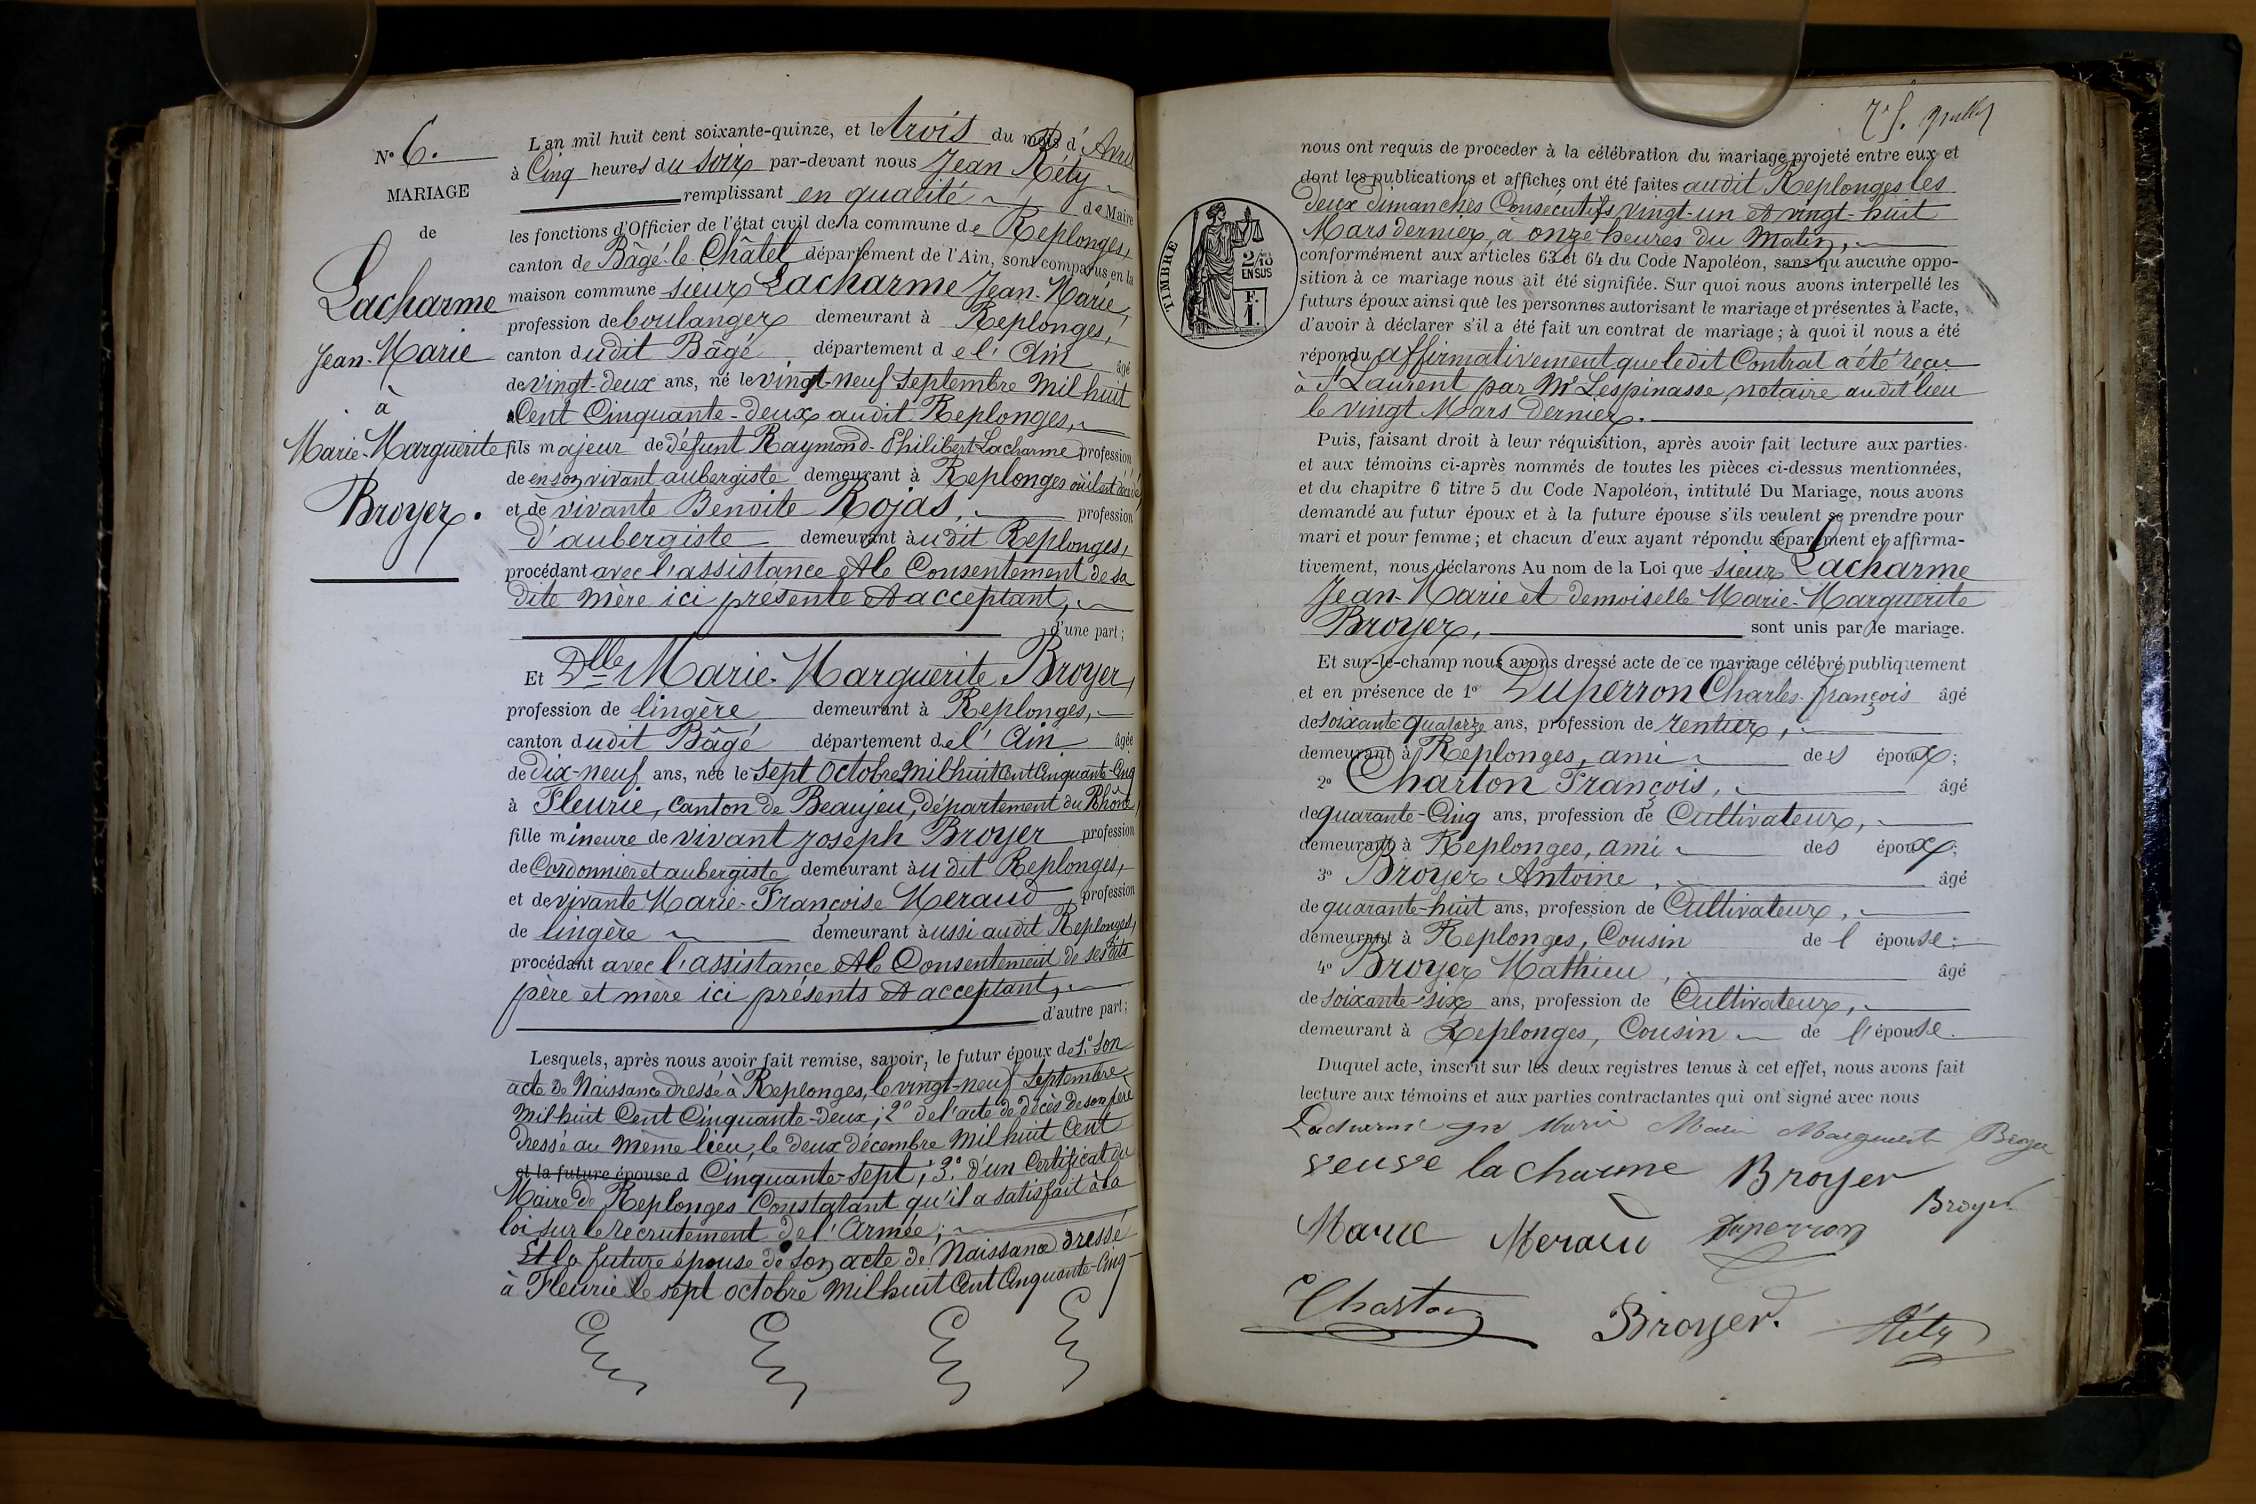 N° 6.
MARIAGE
de
Lacharme
Jean-Marie
à
Marie-Marguerite
Broyer.
L'an mil huit cent soixante-quinze, et le trois du mois d'Avril
à Cinq heures du soir par-devant nous Jean Réty
remplissant en qualité de Maire
les fonctions d'Officier de l'état civil de la commune de Replonges,
canton de Bâgé-le-Châtel département de l'Ain, sont comparus en la
maison commune sieur Lacharme Jean-Marie,
profession de boulanger demeurant à Replonges,
canton dudit Bâgé département de l'Ain âgé
de vingt-deux ans, né le vingt-neuf septembre mil huit
Cent Cinquante-deux audit Replonges,
fils majeur de défunt Raymond-Philibert Lacharme profession
de en son vivant aubergiste demeurant à Replonges où il est décédé,
et de vivante Benoite Rojas, profession
d'aubergiste demeurant àudit Replonges,
procédant avec l'assistance et le Consentement de sa
dite mère ici présente et acceptant,
d'une part;
Et Dlle Marie-Marguerite Broyer,
profession de lingère demeurant à Replonges,
canton dudit Bâgé département de l'Ain âgée
de Dix-neuf ans, née le sept octobre mil huit Cent Cinquante-Cinq
à Fleurie, Canton de Beaujeu, département du Rhône,
fille mineure de vivant Joseph Broyer profession
de Cordonnier et aubergiste demeurant àudit Replonges,
et de vivante Marie-Françoise Meraud, profession
de lingère demeurant àussi audit Replonges,
procédant avec l'assistance et le Consentement de ses dits
père et mère ici présents et acceptant,
d'autre part;
Lesquels, après nous avoir fait remise, savoir, le futur époux de 1° son
acte de Naissance dressé à Replonges, le vingt-neuf Septembre
mil huit Cent Cinquante-Deux; 2° de l'acte de décès de son père
dressé au même lieu, le deux décembre mil huit Cent
et la future épouse d Cinquante-sept; 3° d'un Certificat du
Maire de Replonges Constatant qu'il a satisfait à la
loi sur le recrutement de l'Armée;
Et la future épouse de son acte de Naissance dressé
à Fleurie le sept octobre mil huit Cent Cinquante-Cinq
nous ont requis de proceder à la célébration du mariage projeté entre eux et
dont les publications et affiches ont été faites audit Replonges les
deux dimanches Consécutifs vingt-un et vingt-huit
Mars dernier, à onze heures du Matin,
conformément aux articles 63 et 64 du Code Napoléon, sans qu'aucune oppo-
sition à ce mariage nous ait été signifiée. Sur quoi nous avons interpellé les
futurs époux ainsi que les personnes autorisant le mariage et présentes à l'acte,
d'avoir à déclarer s'il a été fait un contrat de mariage; à quoi il nous a été
répondu affirmativement que ledit Contrat a été reçu
à St Laurent par Me Lespinasse, notaire audit lieu
le vingt Mars dernier.
Puis, faisant droit à leur réquisition, après avoir fait lecture aux parties
et aux témoins ci-après nommés de toutes les pièces ci-dessus mentionnées,
et du chapitre 6 titre 5 du Code Napoléon, intitulé Du Mariage, nous avons
demandé au futur époux et à la future épouse s'ils veulent se prendre pour
mari et pour femme; et chacun d'eux ayant répondu séparément et affirma-
tivement, nous déclarons Au nom de la Loi que sieur Lacharme
Jean-Marie et demoiselle Marie-Marguerite
Broyer, sont unis par le mariage.
Et sur-le-champ nous avons dressé acte de ce mariage célébré publiquement
et en présence de 1° Duperron Charles-François âgé
de soixante-quatorze ans, profession de rentier,
demeurant à Replonges, ami des époux;
2° Charton François, âgé
de quarante-Cinq ans, profession de Cultivateur,
demeurant à Replonges, ami des époux;
3° Broyer Antoine, âgé
de quarante-huit ans, profession de Cultivateur,
demeurant à Replonges, Cousin de l'épouse;
4° Broyer Mathieu, âgé
de soixante-six ans, profession de Cultivateur,
demeurant à Replonges, Cousin de l'épouse.
Duquel acte, inscrit sur les deux registres tenus à cet effet, nous avons fait
lecture aux témoins et aux parties contractantes qui ont signé avec nous
Lacharme Marie Marguerite Broyer
veuve la charme Broyer
Broyer
Marie Meraud Duperron
Charton Broyer Réty
TIMBRE
2/10
EN SUS
F.
1.